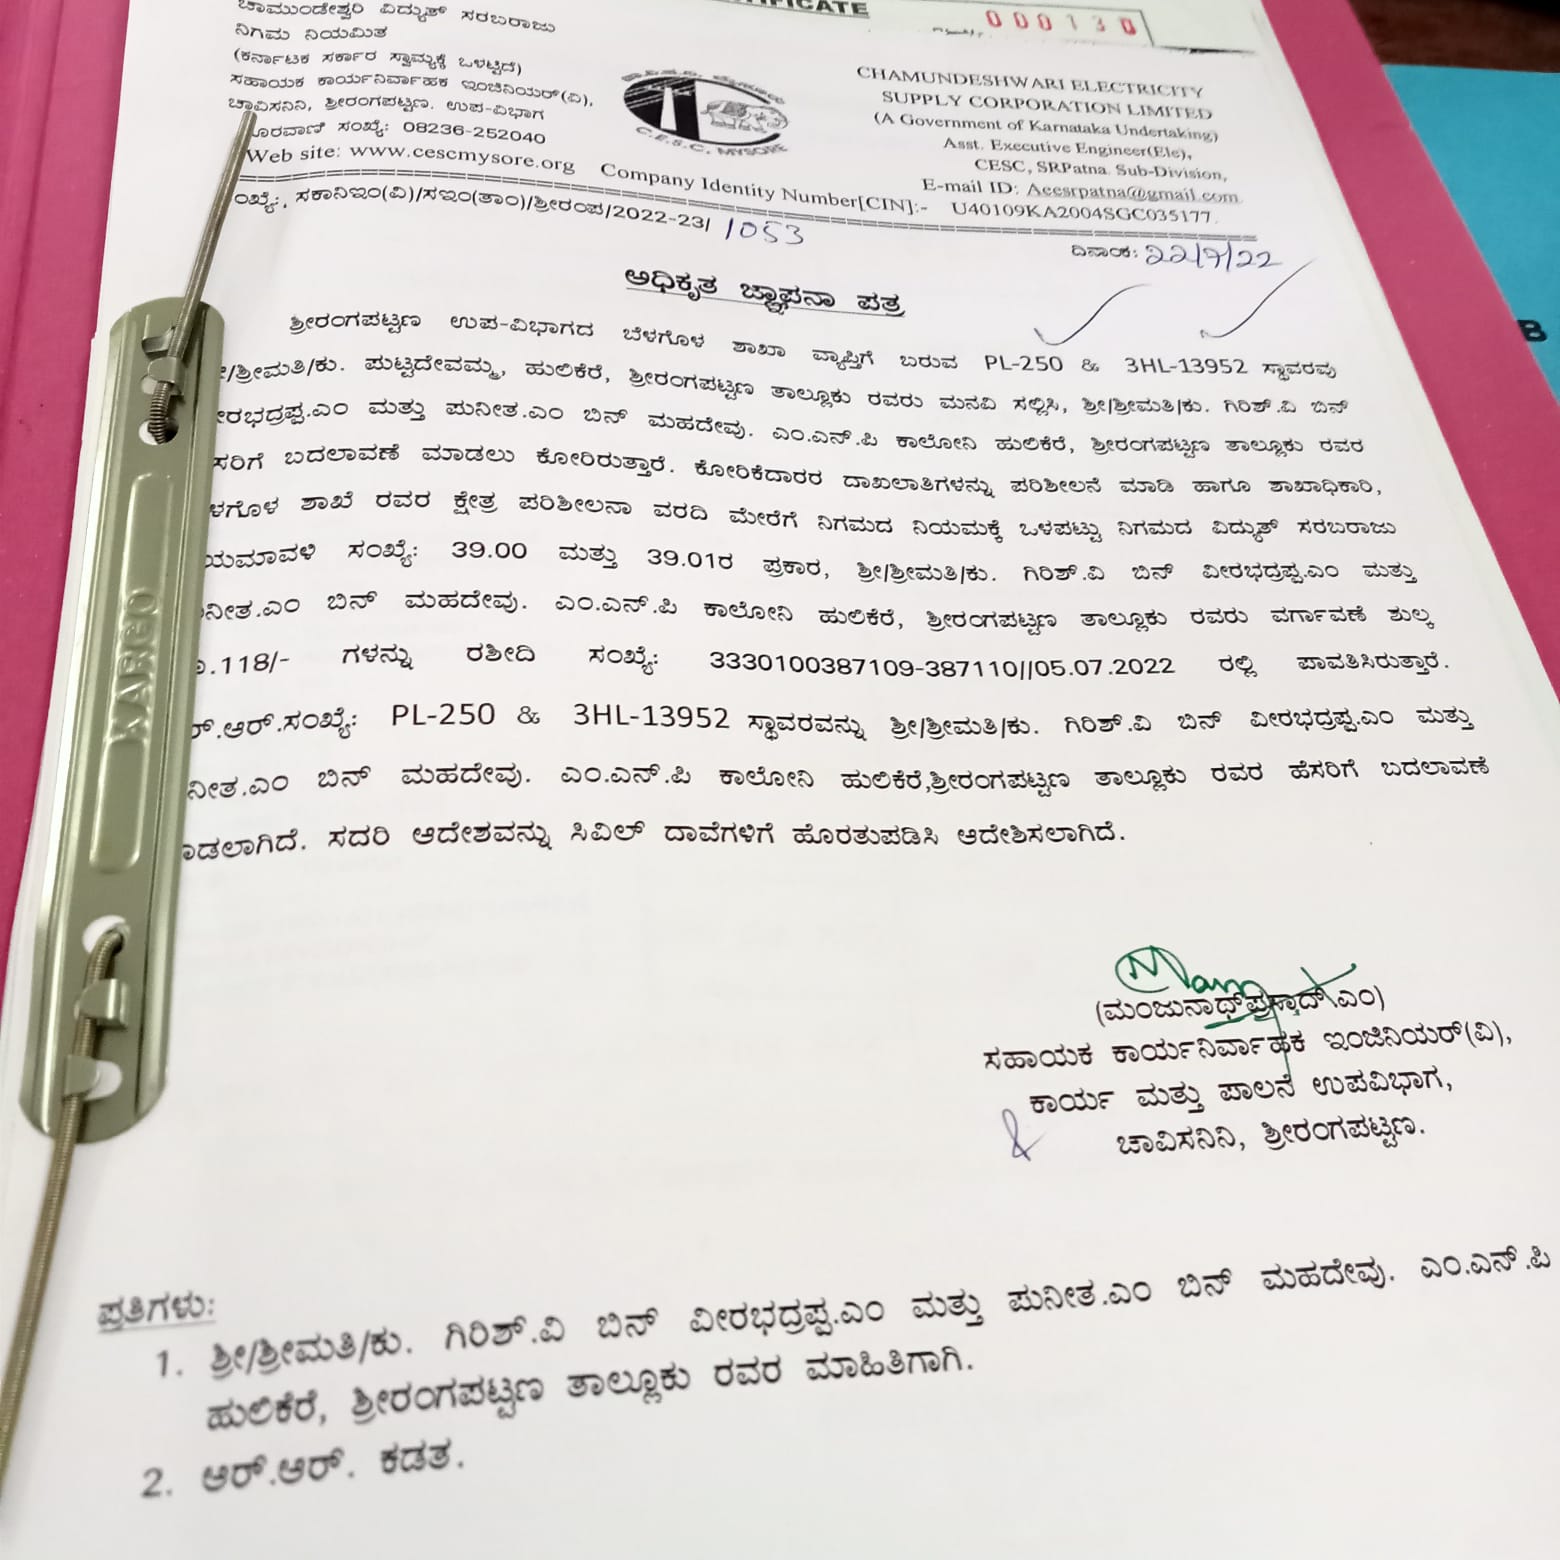 CATE
000130
ಚಾಮುಂಡೇಶ್ವರಿ ವಿದ್ಯುತ್ ಸರಬರಾಜು
ನಿಗಮ ನಿಯಮಿತ
(ಕರ್ನಾಟಕ ಸರ್ಕಾರ ಸ್ವಾಮ್ಯಕ್ಕೆ ಒಳಟ್ಟಿದೆ)
ಸಹಾಯಕ ಕಾರ್ಯನಿರ್ವಾಹಕ ಇಂಜಿನಿಯರ್(ವಿ),
ಚಾವಿಸನಿನಿ, ಶ್ರೀರಂಗಪಟ್ಟಣ. ಉಪ-ವಿಭಾಗ
ೂರವಾಣಿ ಸಂಖ್ಯೆ: 08236-252040
Web site: www.cescmysore.org
C.E.S.C. MYSORE
CHAMUNDESHWARI ELECTRICITY
SUPPLY CORPORATION LIMITED
(A Government of Karnataka Undertaking)
Asst. Executive Engineer(Ele),
CESC, SRPatna. Sub-Division,
E-mail ID: Aeesrpatna@gmail.com
Company Identity Number[CIN]:- U40109KA2004SGC035177.
ಂಖ್ಯೆ:, ಸಕಾನಿಇಂ(ವಿ)/ಸಇಂ(ತಾಂ)/ಶ್ರೀರಂಪ/2022-23/ 1053
ದಿನಾಂಕ: 22/7/22
ಅಧಿಕೃತ ಜ್ಞಾಪನಾ ಪತ್ರ
ಶ್ರೀರಂಗಪಟ್ಟಣ ಉಪ-ವಿಭಾಗದ ಬೆಳಗೊಳ ಶಾಖಾ ವ್ಯಾಪ್ತಿಗೆ ಬರುವ PL-250 & 3HL-13952 ಸ್ಥಾವರವು
/ಶ್ರೀಮತಿ/ಕು. ಪುಟ್ಟದೇವಮ್ಮ, ಹುಲಿಕೆರೆ, ಶ್ರೀರಂಗಪಟ್ಟಣ ತಾಲ್ಲೂಕು ರವರು ಮನವಿ ಸಲ್ಲಿಸಿ, ಶ್ರೀ/ಶ್ರೀಮತಿ/ಕು. ಗಿರಿಶ್.ವಿ ಬಿನ್
ೀರಭದ್ರಪ್ಪ.ಎಂ ಮತ್ತು ಪುನೀತ.ಎಂ ಬಿನ್ ಮಹದೇವು. ಎಂ.ಎನ್.ಪಿ ಕಾಲೋನಿ ಹುಲಿಕೆರೆ, ಶ್ರೀರಂಗಪಟ್ಟಣ ತಾಲ್ಲೂಕು ರವರ
ಸರಿಗೆ ಬದಲಾವಣೆ ಮಾಡಲು ಕೋರಿರುತ್ತಾರೆ. ಕೋರಿಕೆದಾರರ ದಾಖಲಾತಿಗಳನ್ನು ಪರಿಶೀಲನೆ ಮಾಡಿ ಹಾಗೂ ಶಾಖಾಧಿಕಾರಿ,
ಳಗೊಳ ಶಾಖೆ ರವರ ಕ್ಷೇತ್ರ ಪರಿಶೀಲನಾ ವರದಿ ಮೇರೆಗೆ ನಿಗಮದ ನಿಯಮಕ್ಕೆ ಒಳಪಟ್ಟು ನಿಗಮದ ವಿದ್ಯುತ್ ಸರಬರಾಜು
ಯಮಾವಳಿ ಸಂಖ್ಯೆ: 39.00 ಮತ್ತು 39.01ರ ಪ್ರಕಾರ, ಶ್ರೀ/ಶ್ರೀಮತಿ/ಕು. ಗಿರಿಶ್.ವಿ ಬಿನ್ ವೀರಭದ್ರಪ್ಪ.ಎಂ ಮತ್ತು
ನೀತ.ಎಂ ಬಿನ್ ಮಹದೇವು. ಎಂ.ಎನ್.ಪಿ ಕಾಲೋನಿ ಹುಲಿಕೆರೆ, ಶ್ರೀರಂಗಪಟ್ಟಣ ತಾಲ್ಲೂಕು ರವರು ವರ್ಗಾವಣೆ ಶುಲ್ಕ
.118/- ಗಳನ್ನು ರಶೀದಿ ಸಂಖ್ಯೆ: 3330100387109-387110//05.07.2022 ರಲ್ಲಿ ಪಾವತಿಸಿರುತ್ತಾರೆ.
ರ್.ಆರ್.ಸಂಖ್ಯೆ: PL-250 & 3HL-13952 ಸ್ಥಾವರವನ್ನು ಶ್ರೀ/ಶ್ರೀಮತಿ/ಕು. ಗಿರಿಶ್.ವಿ ಬಿನ್ ವೀರಭದ್ರಪ್ಪ.ಎಂ ಮತ್ತು
ನೀತ.ಎಂ ಬಿನ್ ಮಹದೇವು. ಎಂ.ಎನ್.ಪಿ ಕಾಲೋನಿ ಹುಲಿಕೆರೆ,ಶ್ರೀರಂಗಪಟ್ಟಣ ತಾಲ್ಲೂಕು ರವರ ಹೆಸರಿಗೆ ಬದಲಾವಣೆ
ಾಡಲಾಗಿದೆ. ಸದರಿ ಆದೇಶವನ್ನು ಸಿವಿಲ್ ದಾವೆಗಳಿಗೆ ಹೊರತುಪಡಿಸಿ ಆದೇಶಿಸಲಾಗಿದೆ.
KARGO
B
(ಮಂಜುನಾಥ್‌ಪ್ರಸಾದ್ ಎಂ)
ಸಹಾಯಕ ಕಾರ್ಯನಿರ್ವಾಹಕ ಇಂಜಿನಿಯರ್(ವಿ),
ಕಾರ್ಯ ಮತ್ತು ಪಾಲನೆ ಉಪವಿಭಾಗ,
ಚಾವಿಸನಿನಿ, ಶ್ರೀರಂಗಪಟ್ಟಣ.
ಪ್ರತಿಗಳು:
1. ಶ್ರೀ/ಶ್ರೀಮತಿ/ಕು. ಗಿರಿಶ್.ವಿ ಬಿನ್ ವೀರಭದ್ರಪ್ಪ.ಎಂ ಮತ್ತು ಪುನೀತ.ಎಂ ಬಿನ್ ಮಹದೇವು. ಎಂ.ಎನ್.ಪಿ
ಹುಲಿಕೆರೆ, ಶ್ರೀರಂಗಪಟ್ಟಣ ತಾಲ್ಲೂಕು ರವರ ಮಾಹಿತಿಗಾಗಿ.
2. ಆರ್.ಆರ್. ಕಡತ.